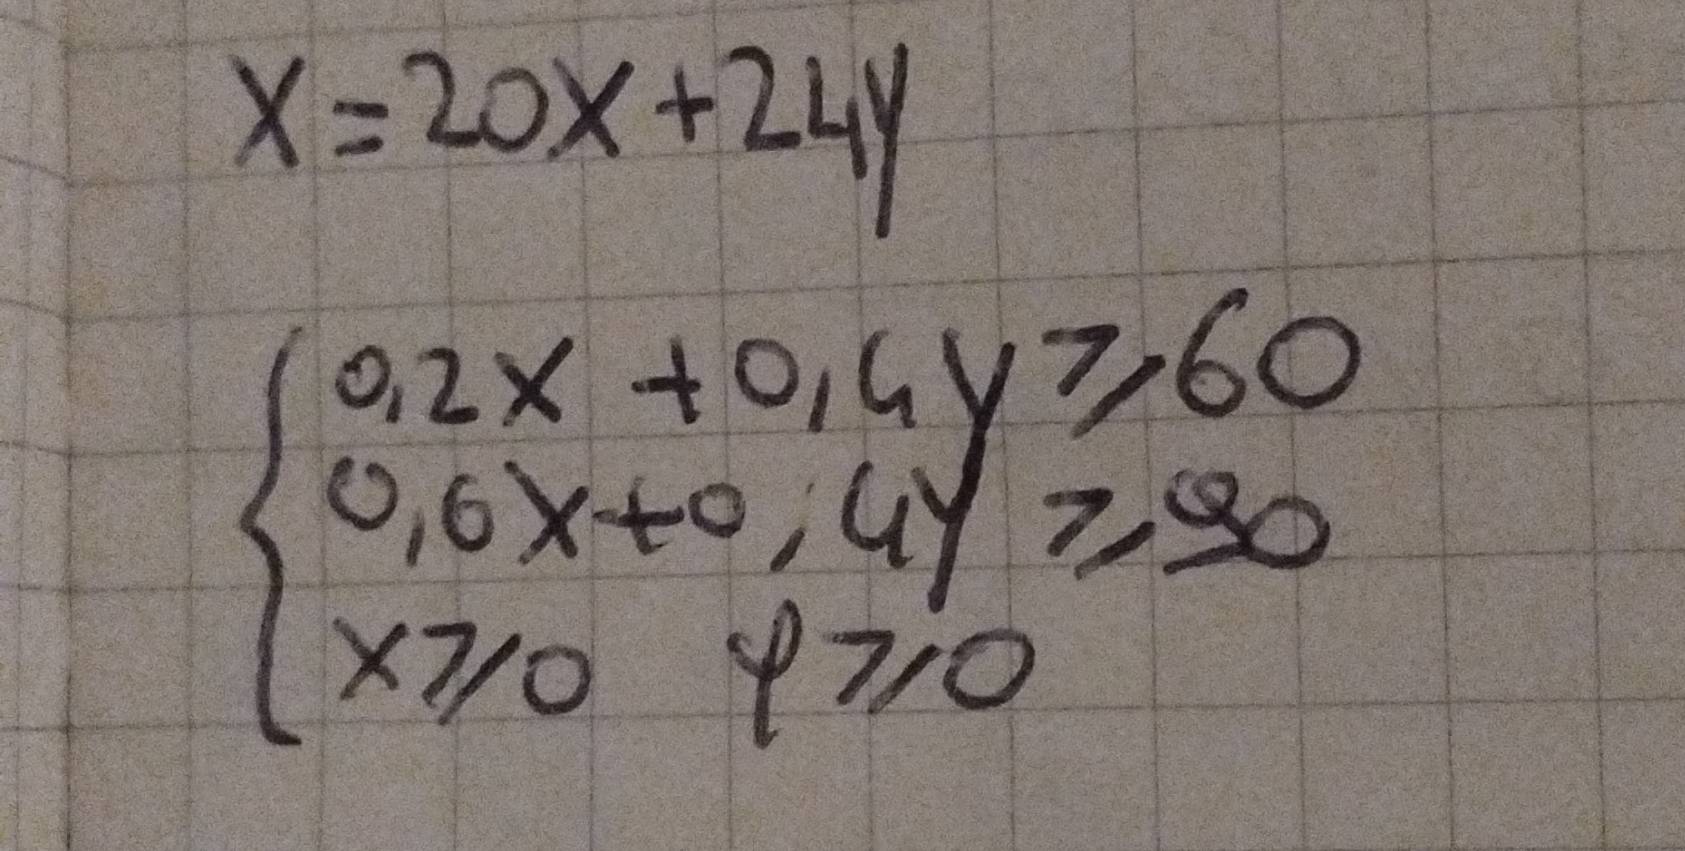 X=20X+24y
0,2X +0,4y⩾60
0,6X+0,4y ⩾90
x⩾0 y⩾0